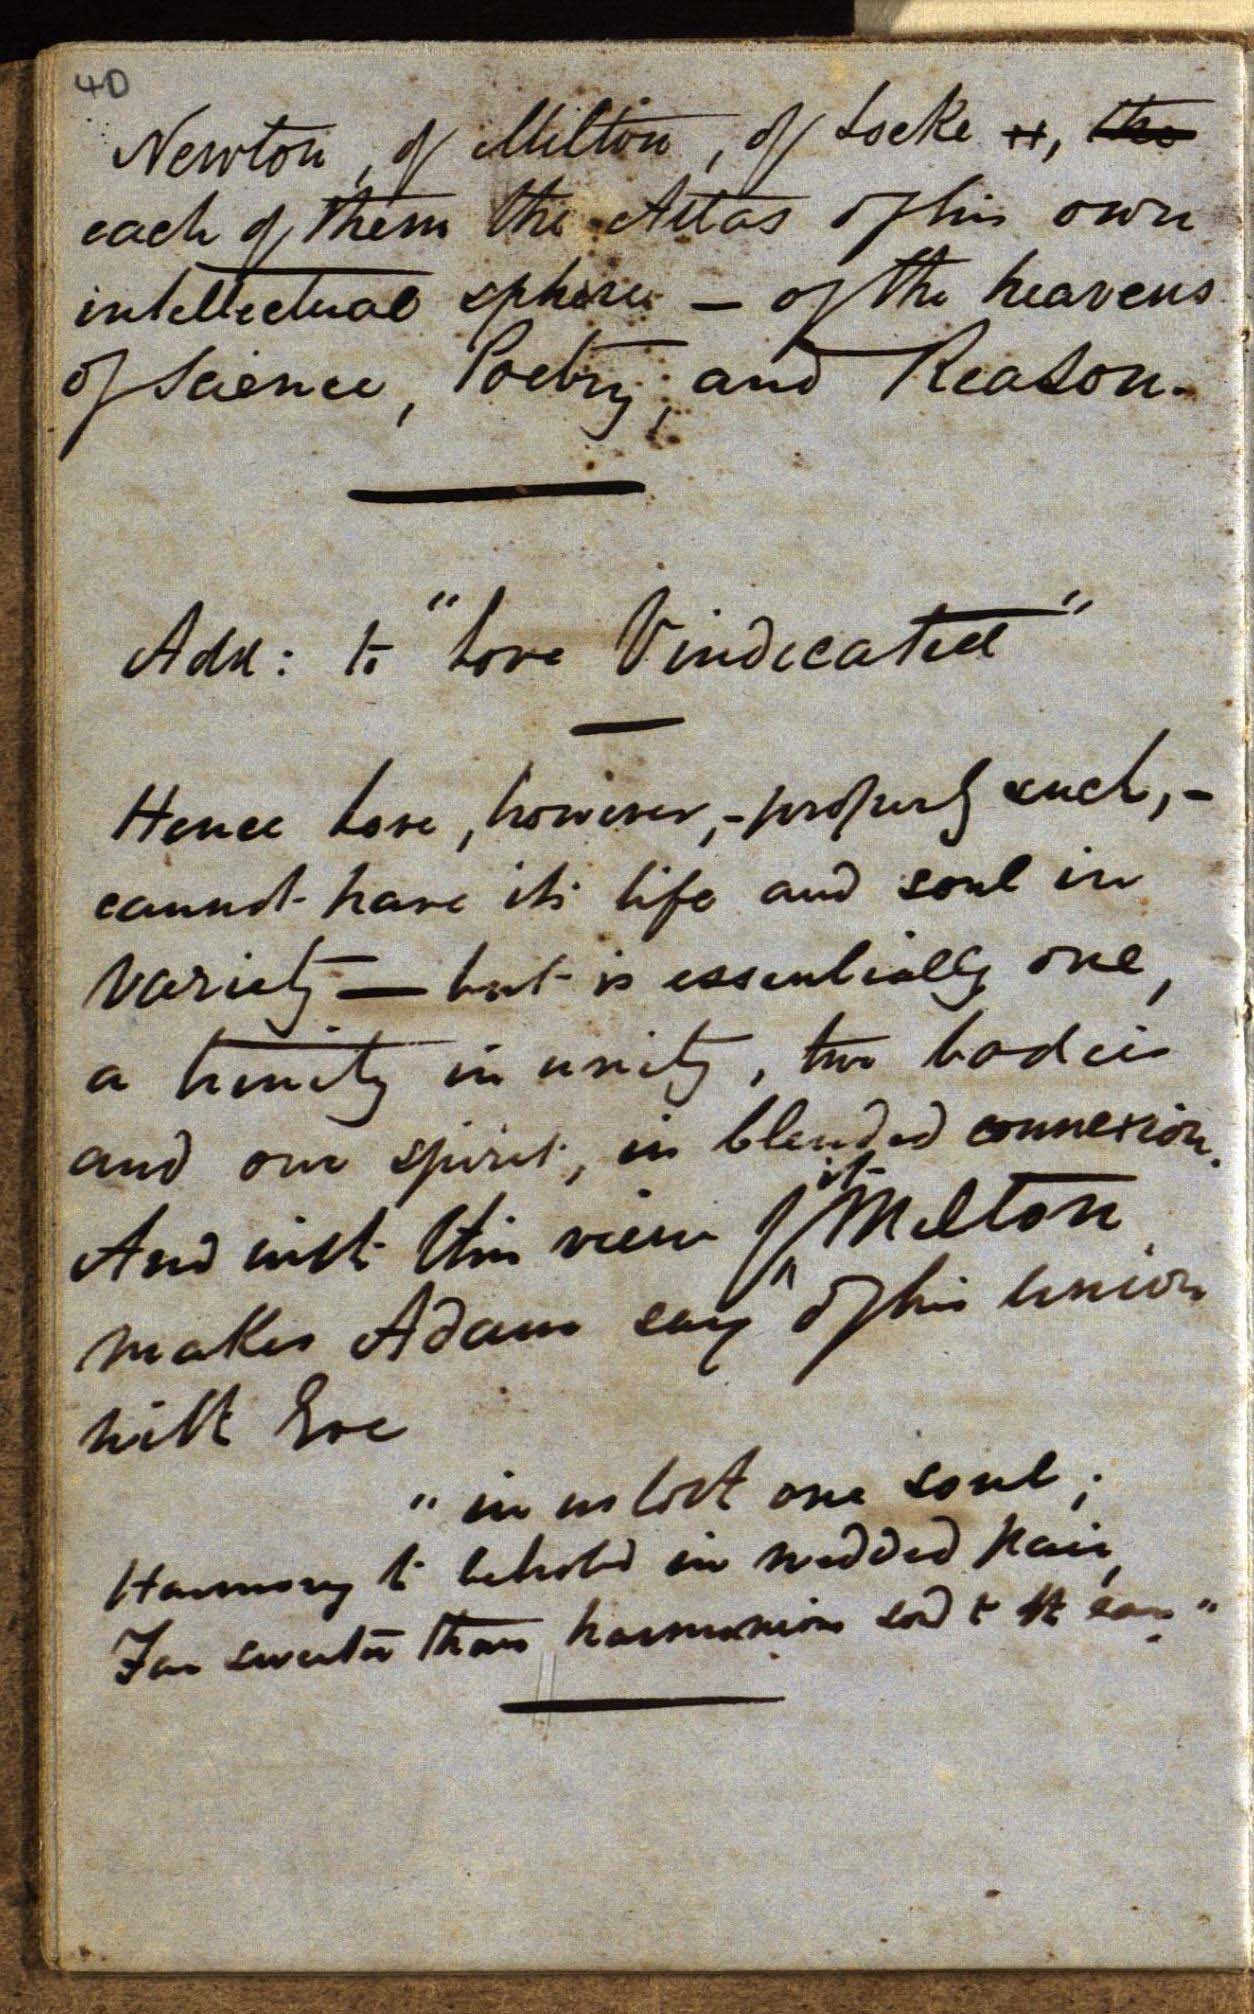 40
Newton, of Milton, of Locke ++, the
each of them the Atlas of his own
intellectual sphere – of the heavens
of Science, Poetry, and Reason.
Add: to "Love Vindicated"
Hence Love, however, – properly such, –
cannot have its life and soul in
variety — but is essentially one,
a trinity in unity, two bodies
and one spirit, in blended connexion.
And with this view of it Milton
makes Adam say of his union
with Eve
" in us both one soul;
Harmony to behold in wedded pair,
Far sweeter than harmonious to the ear"